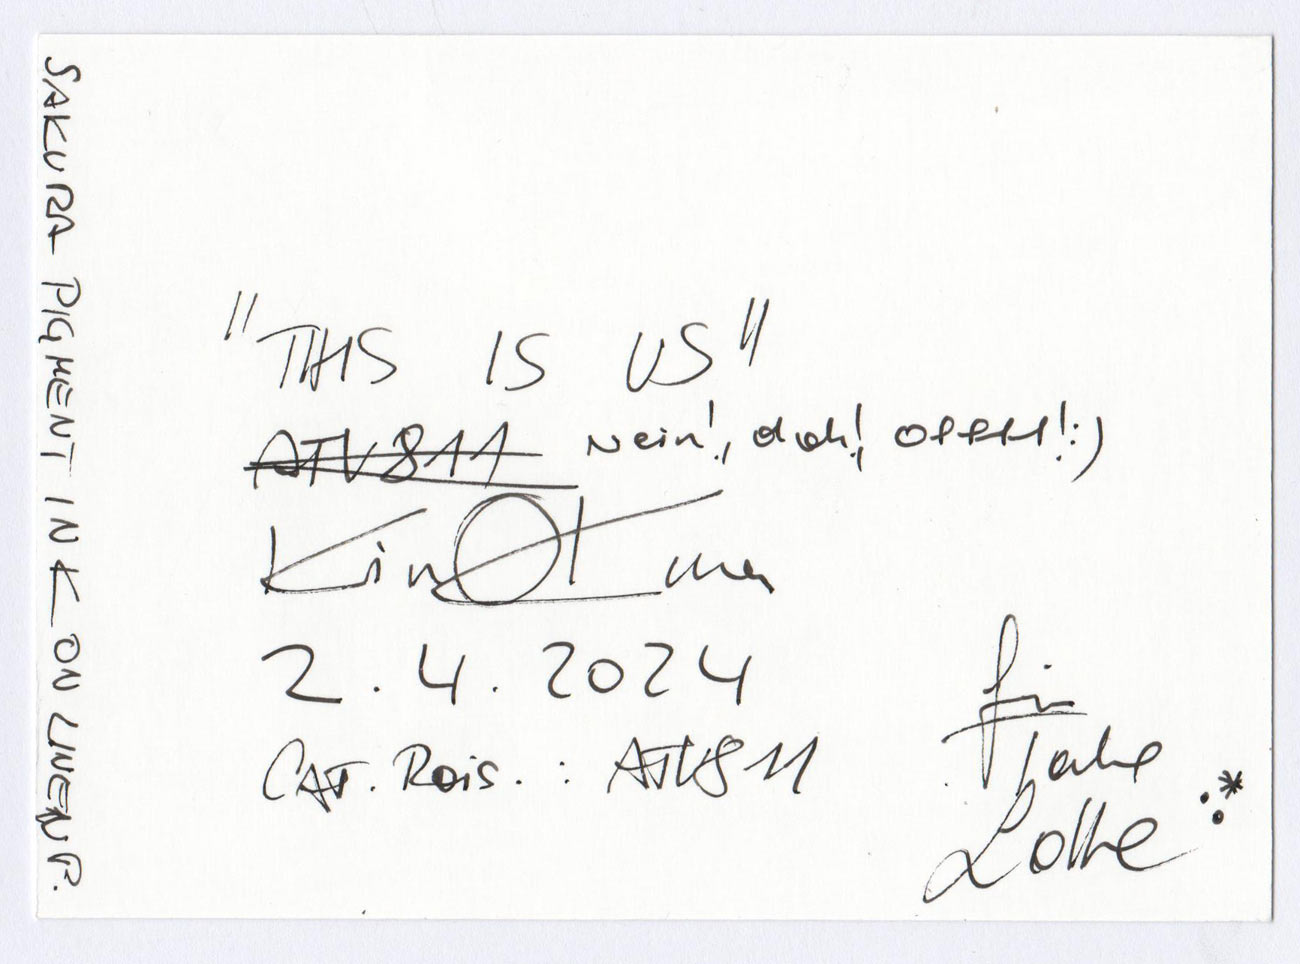 SAKURA PIGMENT INK ON LINENP.
"THIS IS US"
ATV811 Nein!, doch! Ohhh! :)
2.4.2024
CAT. Rais.: ATV811
für
Tante
Lotte